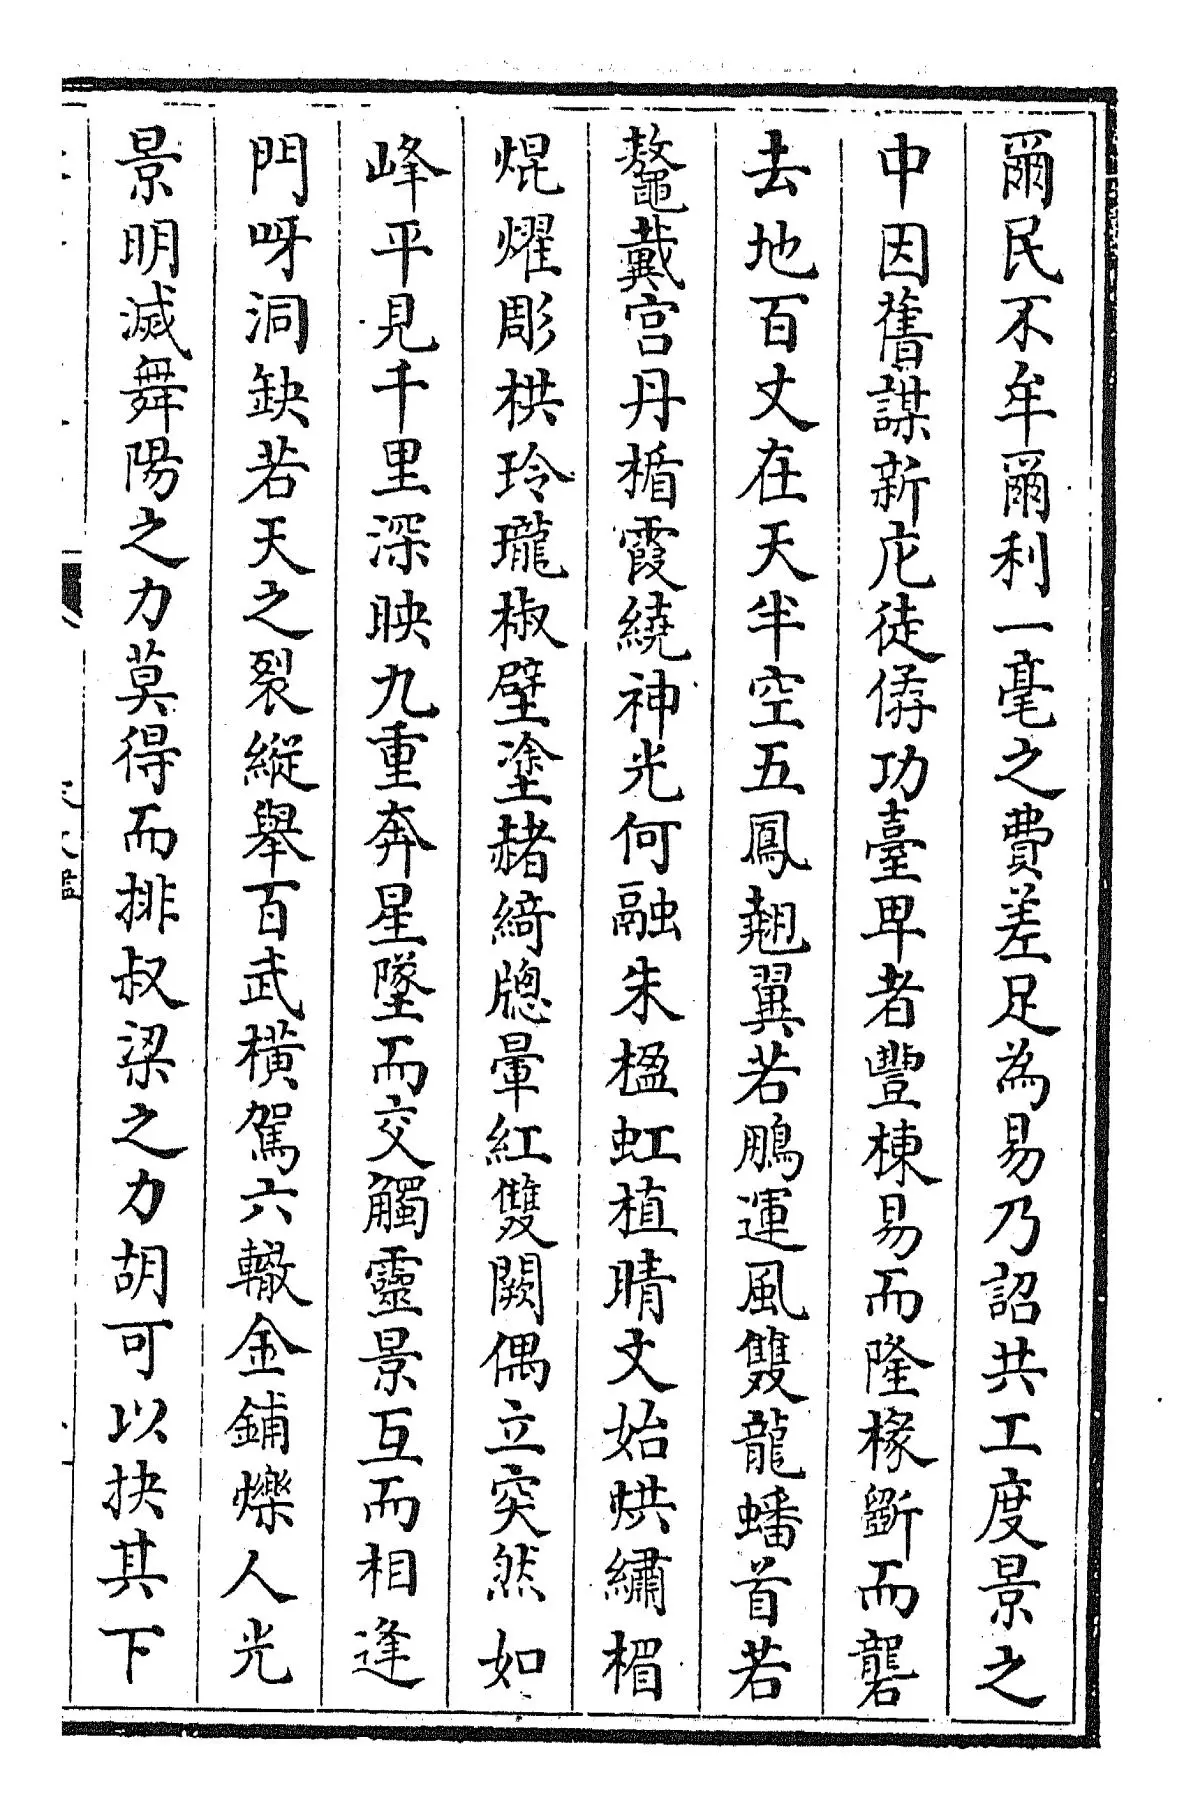 爾民不牟爾利一毫之費差足為易乃詔共工度景之
中因舊謀新庀徒僝功臺卑者豐棟易而隆椽斲而礱
去地百丈在天半空五鳳翹翼若鵬運風雙龍蟠首若
鼇戴宫丹楯霞繞神光何融朱楹虹植晴文始烘繡楣
焜燿彫栱玲瓏椒壁塗赭綺牕暈紅雙闕偶立突然如
峰平見千里深映九重奔星墜而交觸靈景互而相逢
門呀洞缺若天之裂縱舉百武横駕六轍金鋪爍人光
景明滅舞陽之力莫得而排叔梁之力胡可以抉其下